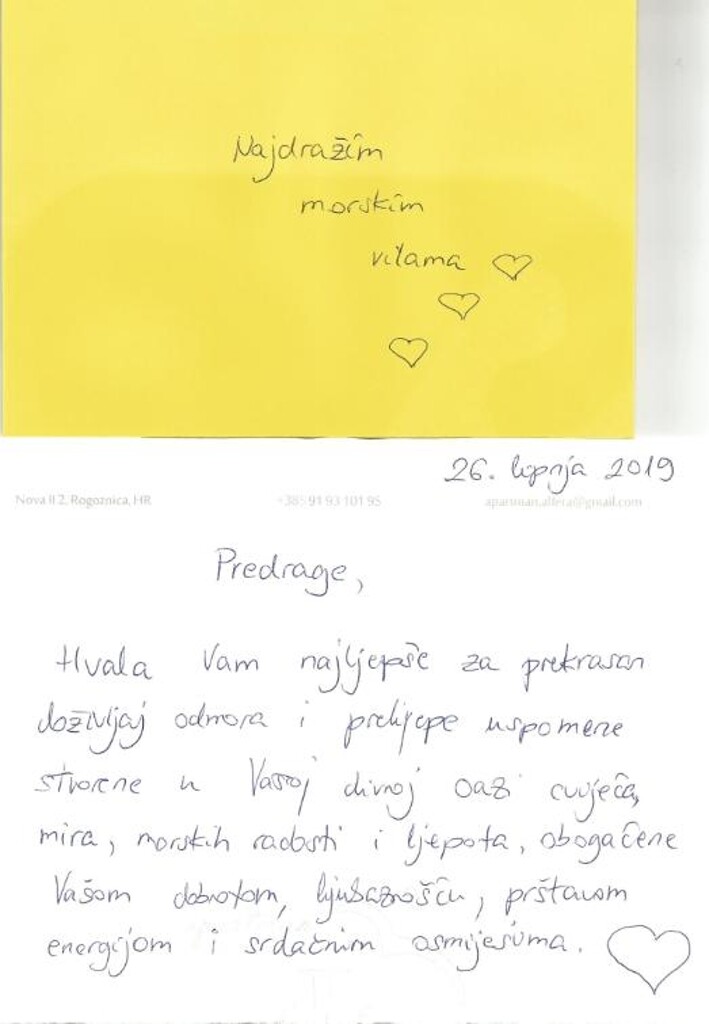 Najdražim
morskim
vilama
26. lipnja 2019
Nova II 2, Rogoznica, HR +385 91 93 101 95 apartman.altera@gmail.com
Predrage,
Hvala Vam najljepše za prekrasan
doživljaj odmora i prelijepe uspomene
stvorene u Vašoj divnoj oazi cvijeća,
mira, morskih radosti i ljepota, obogaćene
Vašom dobrotom, ljubaznošću, prštavom
energijom i srdačnim osmijesima.